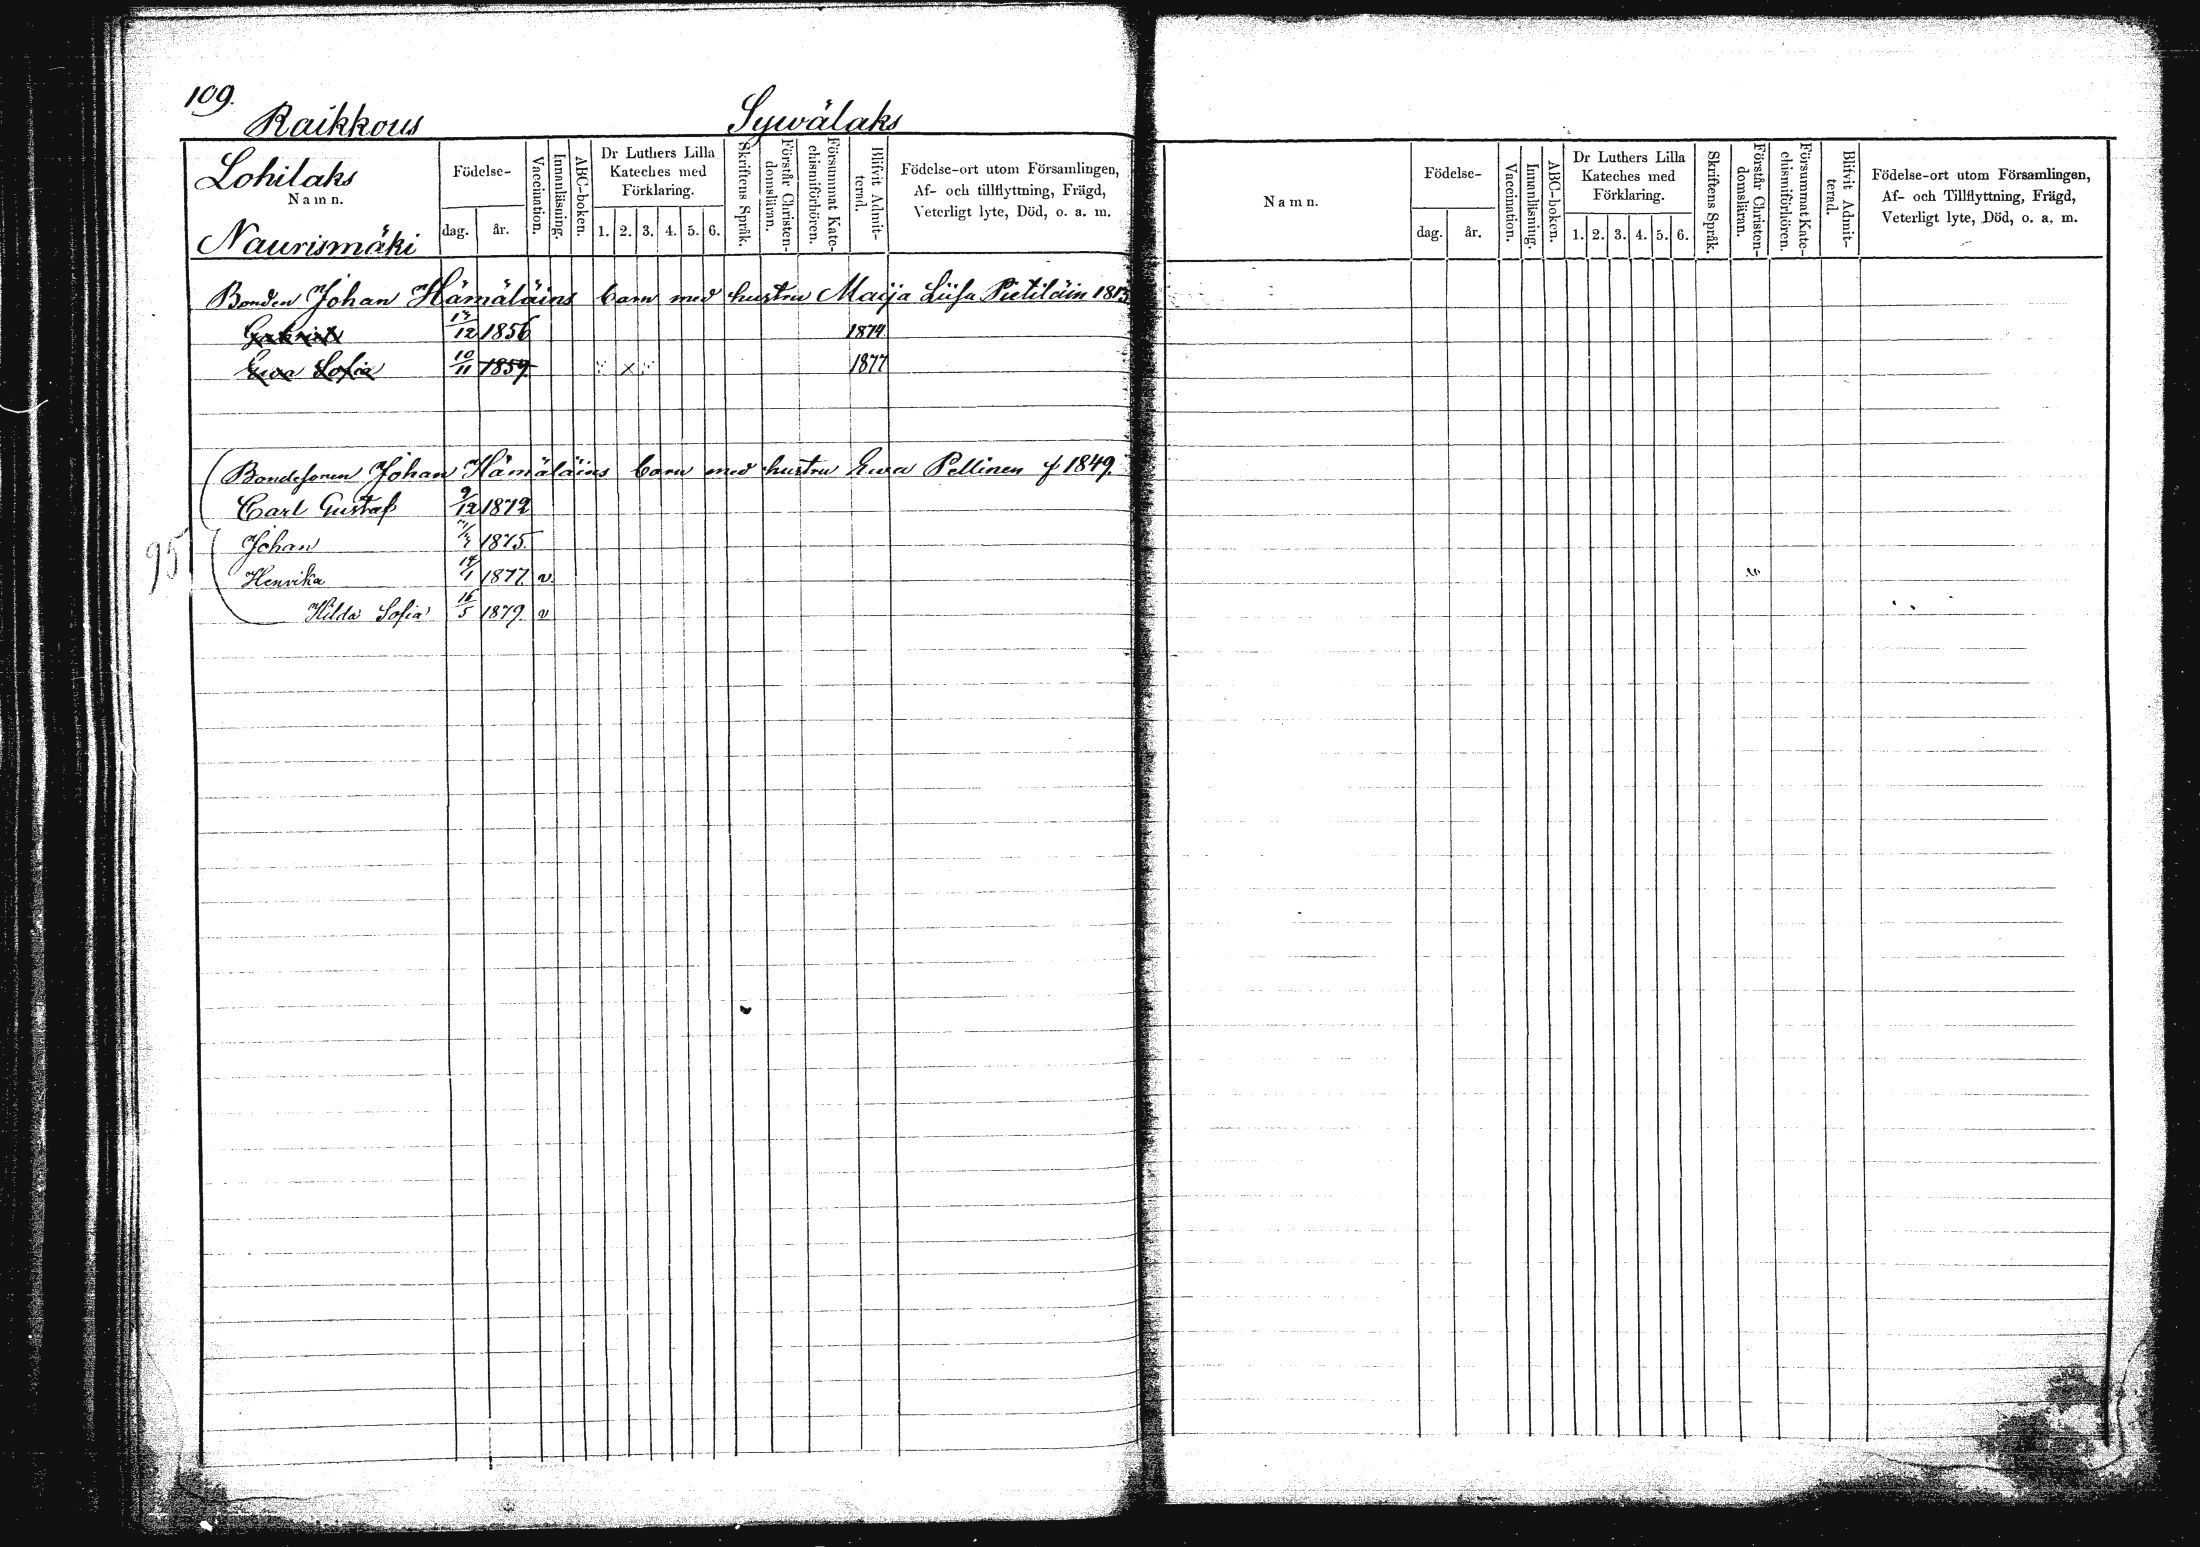 109.
Raikkous Sywälaks
Lohilaks
Namn.
Naurismäki
Födelse-
dag. år.
Vaccination.
Innanläsning.
ABC-boken.
Dr Luthers Lilla
Kateches med
Förklaring.
1. 2. 3. 4. 5. 6.
Skriftens Språk.
Förstår Christen-
domsläran.
Försummat Kate-
chismiförhören.
Blifvit Admit-
terad.
Födelse-ort utom Församlingen,
Af- och tillflyttning, Frägd,
Veterligt lyte, Död, o. a. m.
Bonden Johan Hämäläins barn med hustru Maija Liisa Pietiläin 1813
Gabriel 12 1856 1874
Ewa Sofia 10/11 1859. x 1877
Bondesonen Johan Hämäläins barn med hustru Ewa Pellinen f 1849.
Carl Gustaf 9/12 1872
Johan 1875.
95
Henrika 14/1 1877 v.
Hilda Sofia 16/5 1879. v
Namn.
Födelse-
dag. år.
Vaccination.
Innanläsning.
ABC-boken.
Dr Luthers Lilla
Kateches med
Förklaring.
1. 2. 3. 4. 5. 6.
Skriftens Språk.
Förstår Christen-
domsläran.
Försummat Kate-
chismiförhören.
Blifvit Admit-
terad.
Födelse-ort utom Församlingen,
Af- och Tillflyttning, Frägd,
Veterligt lyte, Död, o. a. m.